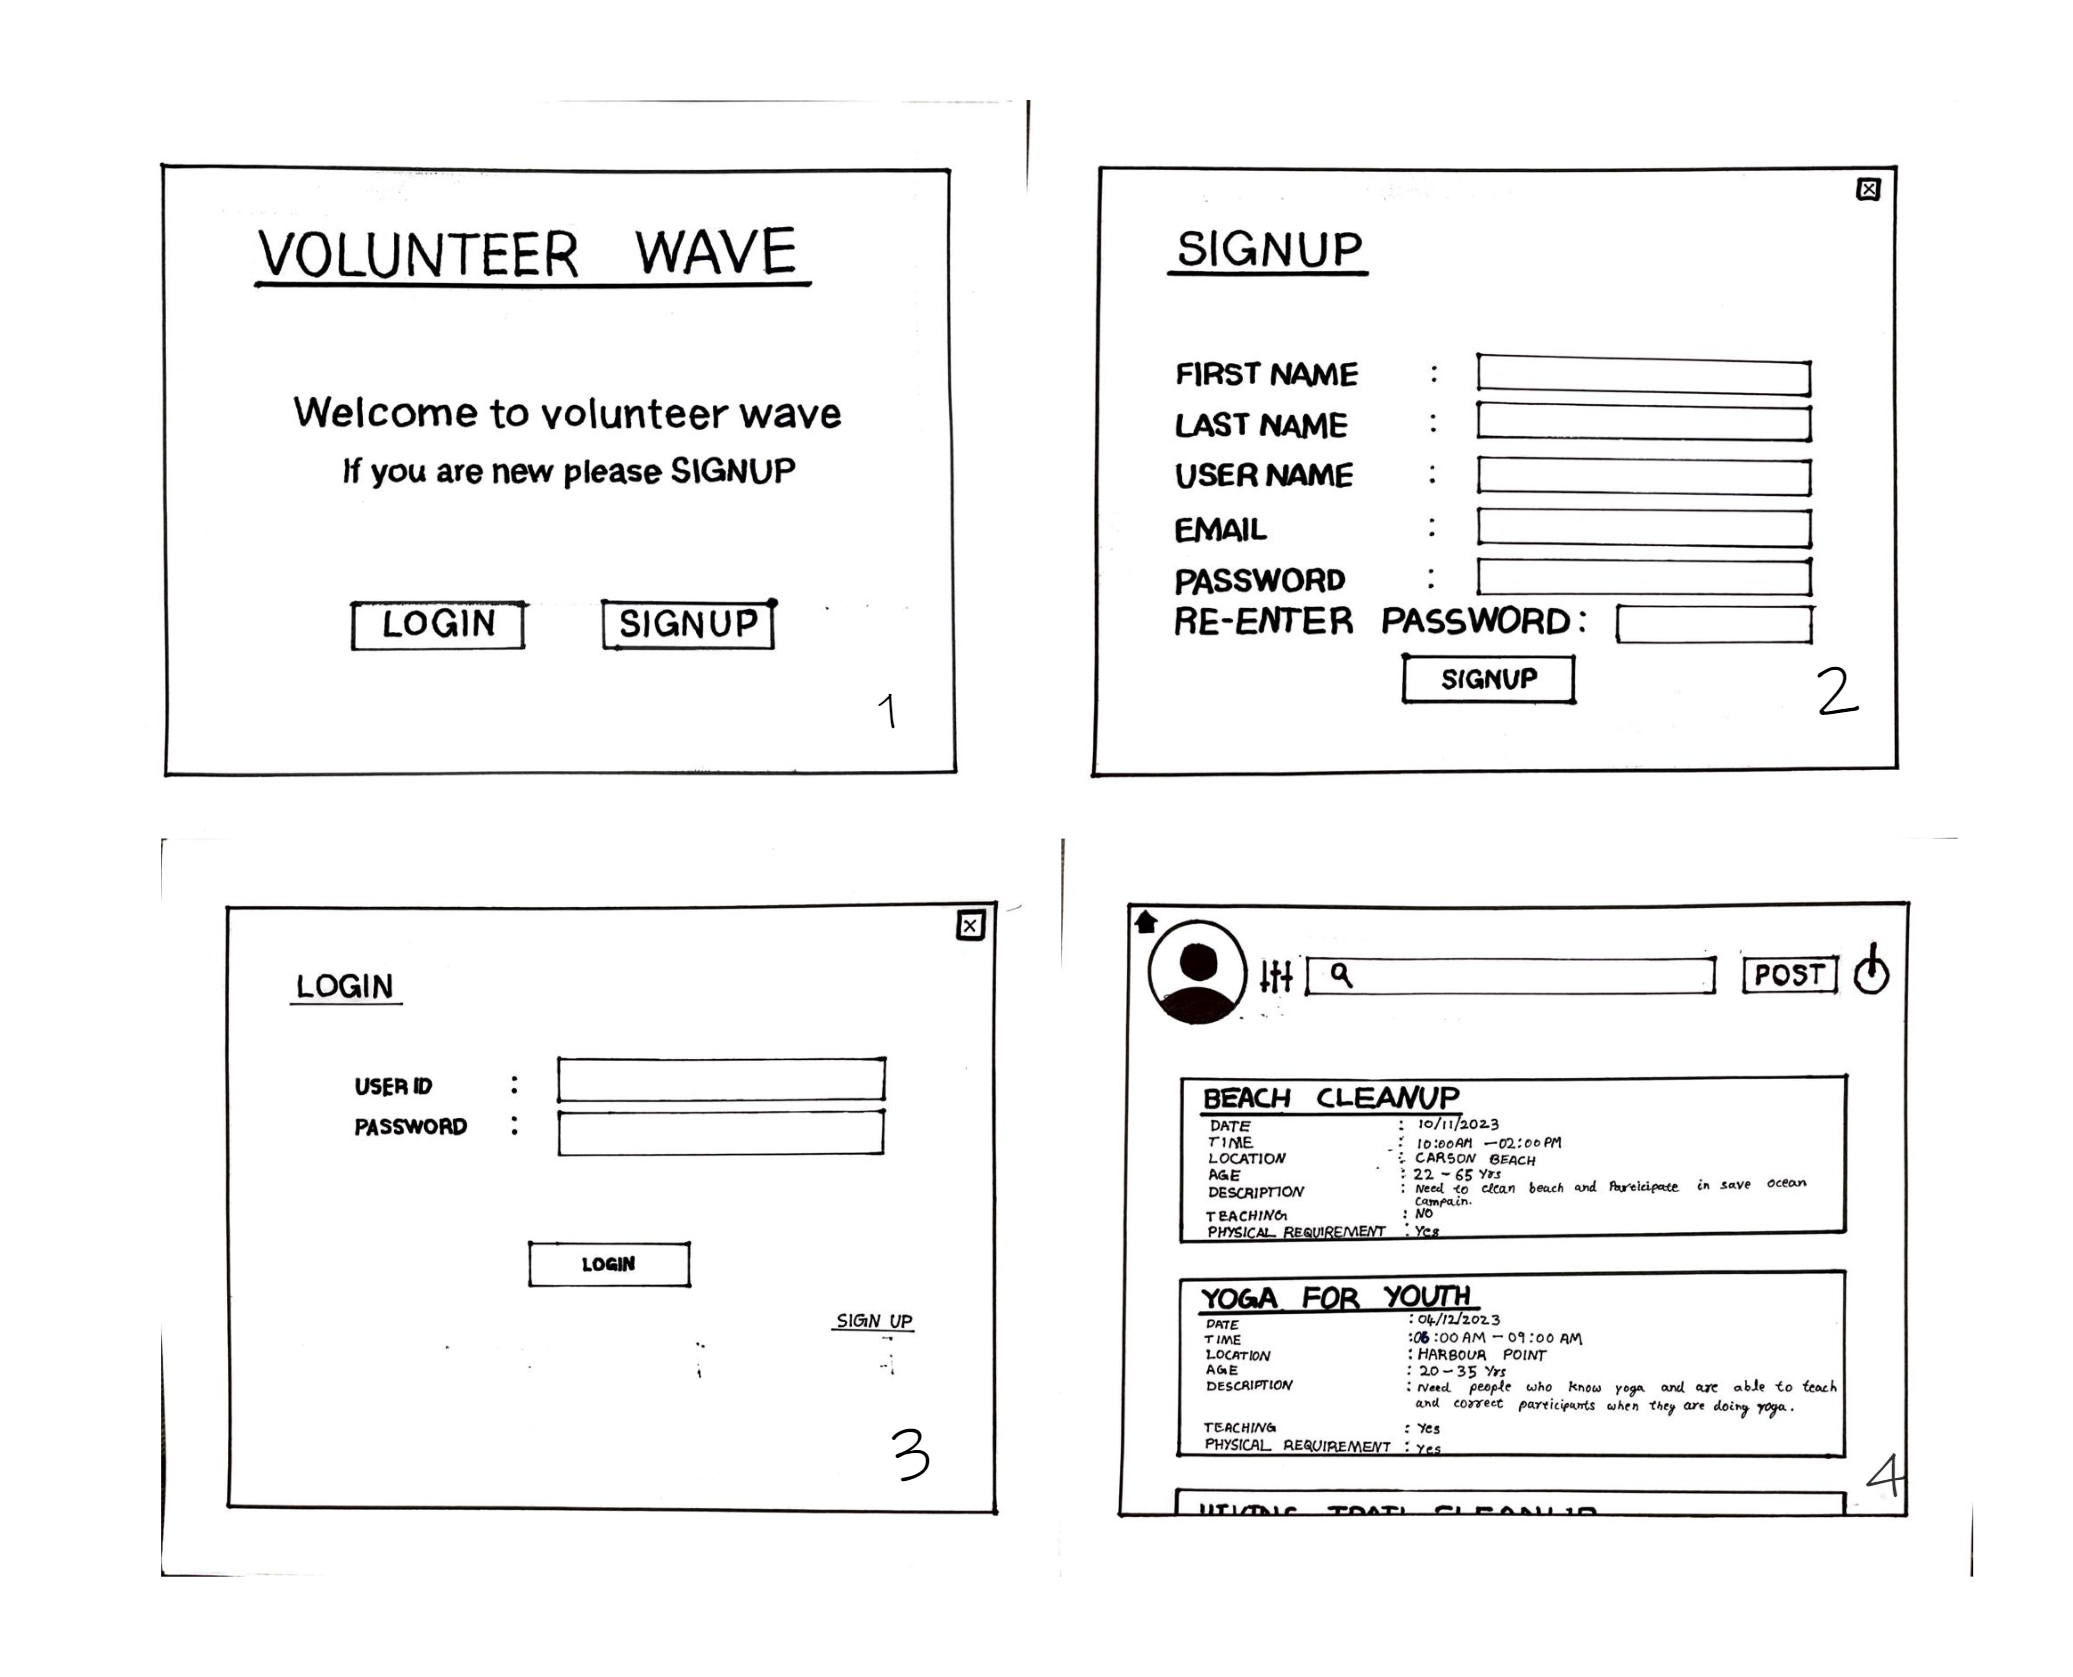 VOLUNTEER WAVE
Welcome to volunteer wave
If you are new please SIGNUP
LOGIN SIGNUP
1
SIGNUP
FIRST NAME :
LAST NAME :
USER NAME :
EMAIL :
PASSWORD :
RE-ENTER PASSWORD:
SIGNUP
2
LOGIN
USER ID :
PASSWORD :
LOGIN
SIGN UP
3
POST
BEACH CLEANUP
DATE : 10/11/2023
TIME : 10:00AM - 02:00 PM
LOCATION : CARSON BEACH
AGE : 22 - 65 Yrs
DESCRIPTION : Need to clean beach and Parcicipate in save ocean
Campain.
TEACHING : NO
PHYSICAL REQUIREMENT : Yes
YOGA FOR YOUTH
DATE : 04/12/2023
TIME : 06:00 AM - 09:00 AM
LOCATION : HARBOUR POINT
AGE : 20 - 35 Yrs
DESCRIPTION : Need people who know yoga and are able to teach
and correct participants when they are doing yoga.
TEACHING : Yes
PHYSICAL REQUIREMENT : Yes
HIKING TRAIL CLEANUP
4